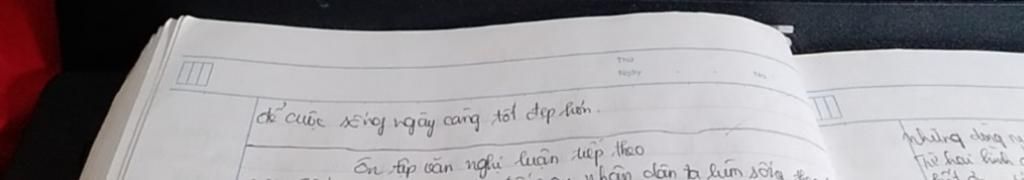 Thứ
Ngày No.
để cuộc sống ngày càng tốt đẹp hơn.
Ôn tập văn nghị luận tiếp theo
nhân dân ta luôn sống
những dòng
Thứ hai hình